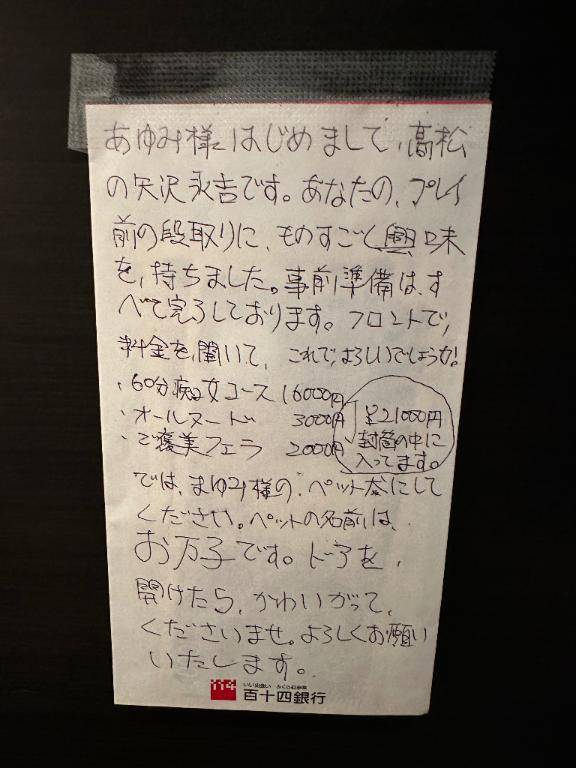 あゆみ様はじめまして、高松
の矢沢永吉です。あなたの、プレイ
前の段取りに、ものすごく興味
を、持ちました。事前準備は、す
べて完了しております。フロントで、
料金を、聞いて、これで、よろしいでしょうか!
・60分痴女コース 16000円
・オールヌード 3000円
・ご褒美フェラ 2000円
¥21000円
封筒の中に
入ってます。
では、まゆみ様の、ペットにして
ください。ペットの名前は、
お万子です。ドアを、
開けたら、かわいがって、
くださいませ。よろしくお願い
いたします。
114 いい出逢い ふくらむ未来
百十四銀行